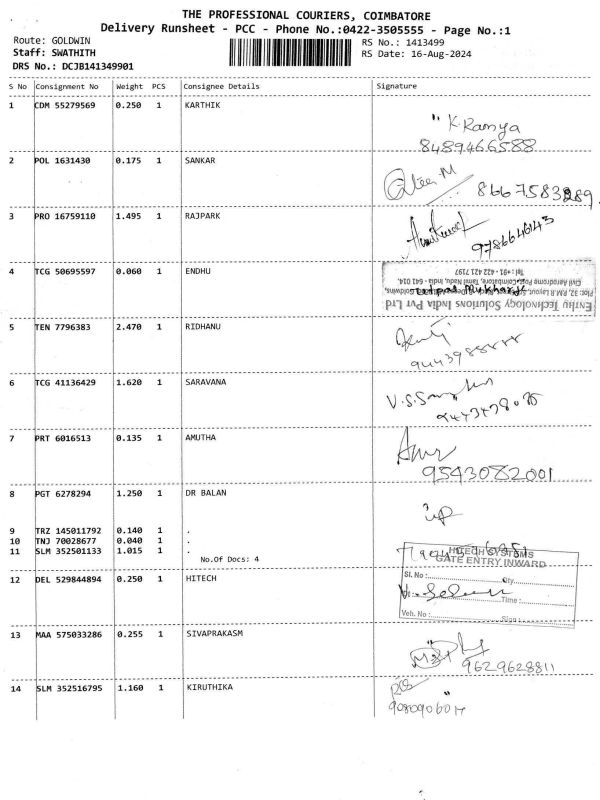 THE PROFESSIONAL COURIERS, COIMBATORE
Delivery Runsheet - PCC - Phone No.:0422-3505555 - Page No.:1
Route: GOLDWIN RS No.: 1413499
Staff: SWATHITH RS Date: 16-Aug-2024
DRS No.: DCJB141349901
S No Consignment No Weight PCS Consignee Details Signature
1 CDM 55279569 0.250 1 KARTHIK
" K Ramya
8489466588
2 POL 1631430 0.175 1 SANKAR
8667583289
3 PRO 16759110 1.495 1 RAJPARK
9786646143
4 TCG 50695597 0.060 1 ENDHU
Enthu Technology Solutions India Pvt Ltd
Civil Aerodrome Post, Coimbatore, Tamil Nadu, India - 641 014.
Tel : +91- 422 421 7197
5 TEN 7796383 2.470 1 RIDHANU
6 TCG 41136429 1.620 1 SARAVANA
7 PRT 6016513 0.135 1 AMUTHA
9543082001
8 PGT 6278294 1.250 1 DR BALAN
9 TRZ 145011792 0.140 1 .
10 TNJ 70028677 0.040 1 .
11 SLM 352501133 1.015 1 .
No.Of Docs: 4
HITECH SYSTEMS
GATE ENTRY INWARD
12 DEL 529844894 0.250 1 HITECH
Sl. No : Qty
Time :
Veh. No : Sign :
13 MAA 575033286 0.255 1 SIVAPRAKASM
9629628811
14 SLM 352516795 1.160 1 KIRUTHIKA